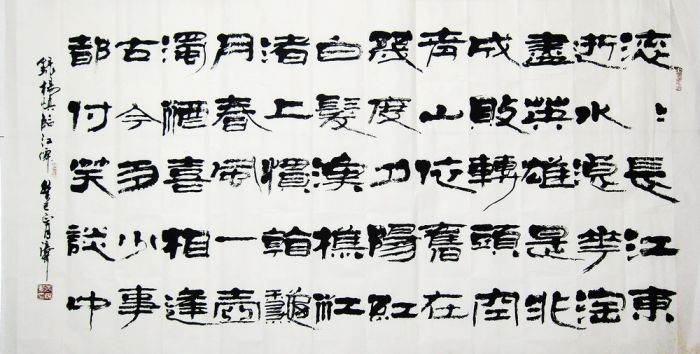 滚：長江東
逝水浪花淘
盡英雄是非
成敗轉頭空
青山依舊在
幾度夕陽紅
白髮漁樵江
渚上慣看龝
月春風一壺
濁酒喜相逢
古今多少事
都付笑談中
録楊慎臨江仙 癸巳